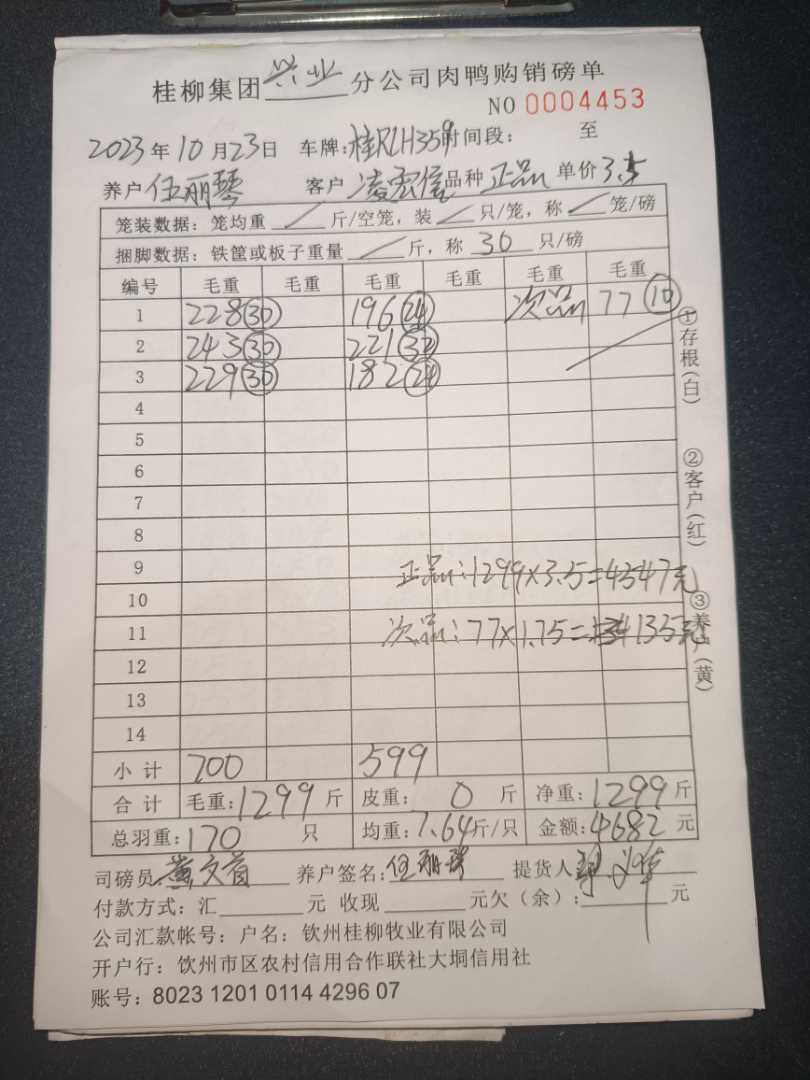 桂柳集团兴业分公司肉鸭购销磅单
NO 0004453
2023年10月23日 车牌:桂RLH359时间段: 至
养户伍丽琴 客户凌宏信品种正品单价3.5
笼装数据:笼均重／斤/空笼,装／只/笼,称／笼/磅
捆脚数据:铁筐或板子重量／斤,称30只/磅
编号 毛重 毛重 毛重 毛重 毛重 毛重
1 228㉚ 196㉔ 次品 77⑩
2 243㉚ 221㉜
3 229㉚ 182㉔
4
5
6
7
8
9 正品:1299×3.5=4547元
10
11 次品:77×1.75=135元
12
13
14
小计 700 599
合计 毛重:1299斤 皮重:0斤 净重:1299斤
总羽重:170只 均重:7.64斤/只 金额:4682元
司磅员:黄文首 养户签名:伍丽琴 提货人
付款方式:汇 元 收现 元欠(余): 元
公司汇款帐号:户名:钦州桂柳牧业有限公司
开户行:饮州市区农村信用合作联社大垌信用社
账号:8023 1201 0114 4296 07
①存根(白) ②客户(红) ③养户(黄)